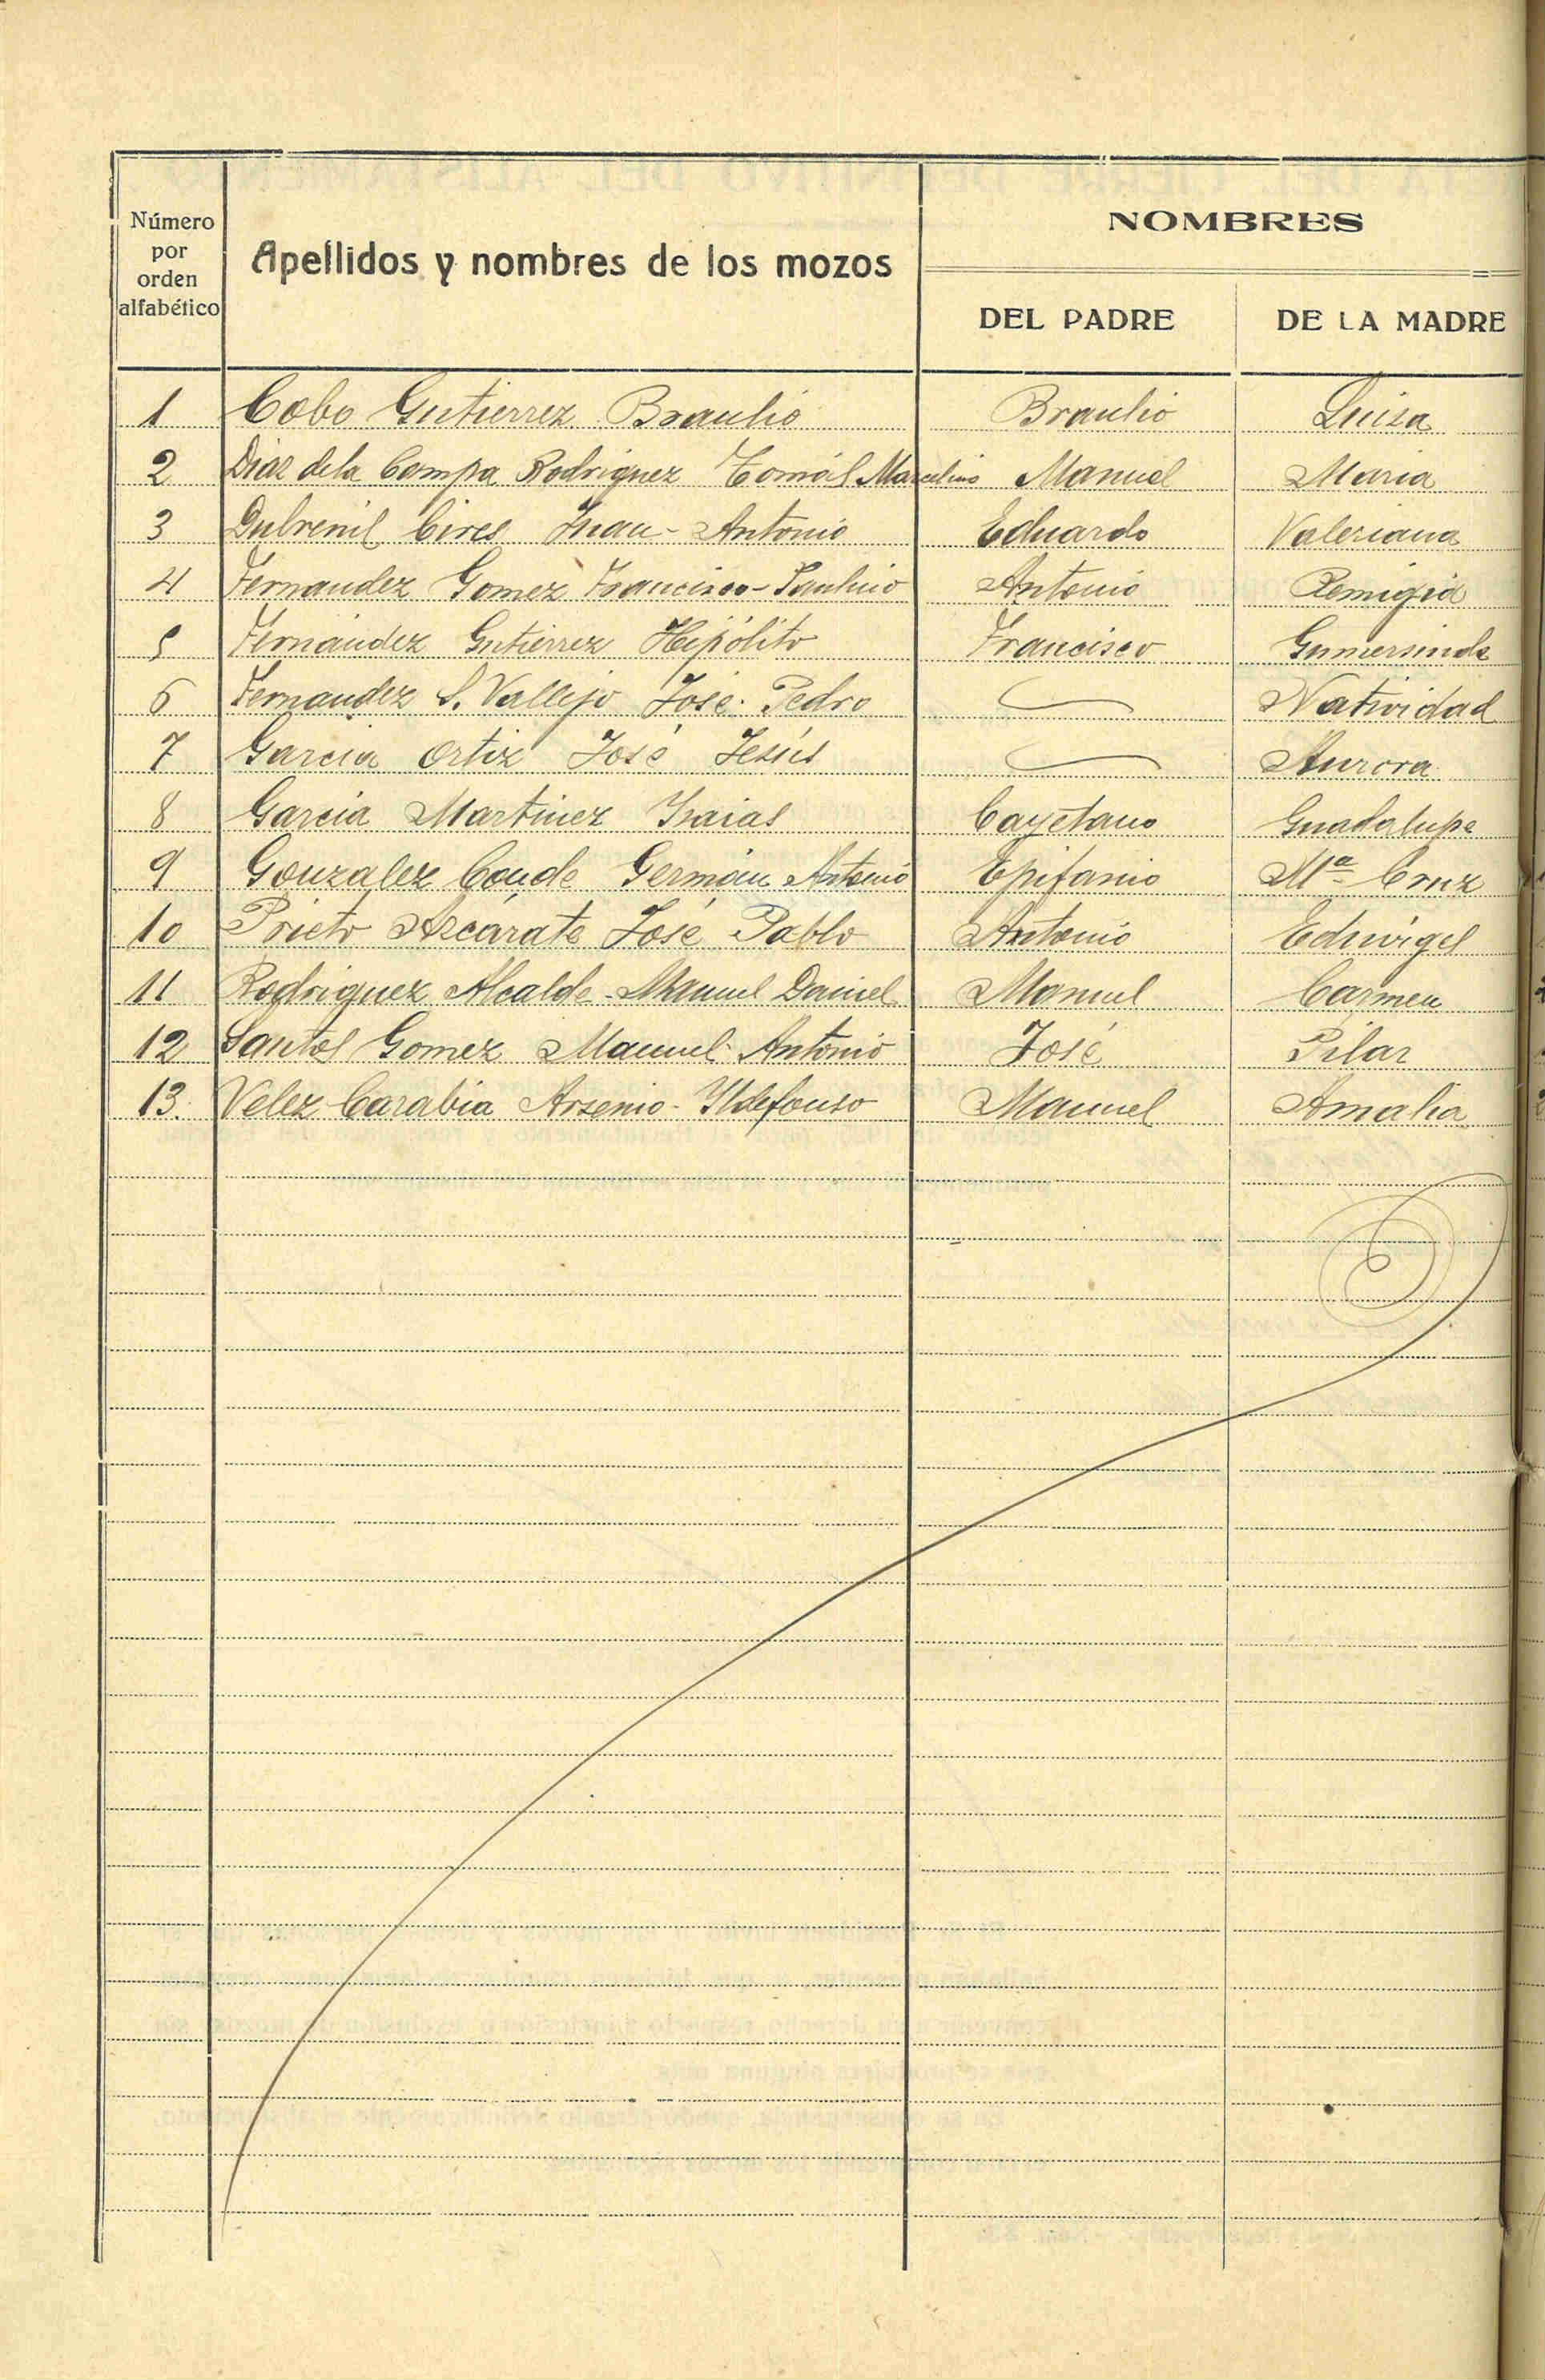 Número por orden alfabético
Apellidos y nombres de los mozos
NOMBRES
DEL PADRE DE LA MADRE
1 Cobo Gutierrez Braulio Braulio Luisa
2 Diaz de la Campa Rodriguez Tomás Marcelino Manuel Maria
3 Dubrenil Cires Juan-Antonio Eduardo Valeriana
4 Fernandez Gomez Francisco-Paulino Antonio Remigia
5 Fernández Gutierrez Hipólito Francisco Gumersinda
6 Fernandez S. Vallejo José-Pedro Natividad
7 Garcia Ortiz José Jesús Aurora
8 Garcia Martinez Isaias Cayetano Guadalupe
9 Gonzalez Conde Germán Antonio Epifanio Mª Cruz
10 Prieto Azcárate José Pablo Antonio Eduvigel
11 Rodriguez Alcalde-Manuel Daniel Manuel Carmen
12 Santos Gomez Manuel-Antonio José Pilar
13. Velez Carabia Arsenio-Ildefonso Manuel Amalia